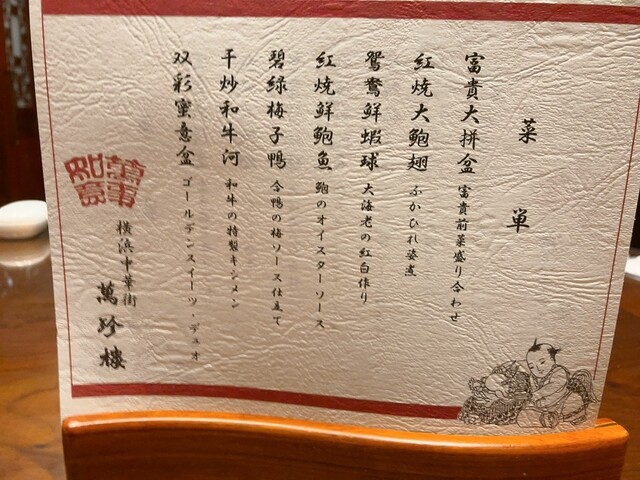 菜単
富貴大拼盆 富貴前菜盛り合わせ
紅焼大鮑翅 ふかひれ姿煮
鴛鴦鮮蝦球 大海老の紅白作り
紅焼鮮鮑魚 鮑のオイスターソース
碧緑梅子鴨 合鴨の梅ソース仕立て
干炒和牛河 和牛の特製キシメン
双彩蜜意盆 ゴールデンスイーツ・デュオ
萬事如意
横浜中華街
萬珍樓